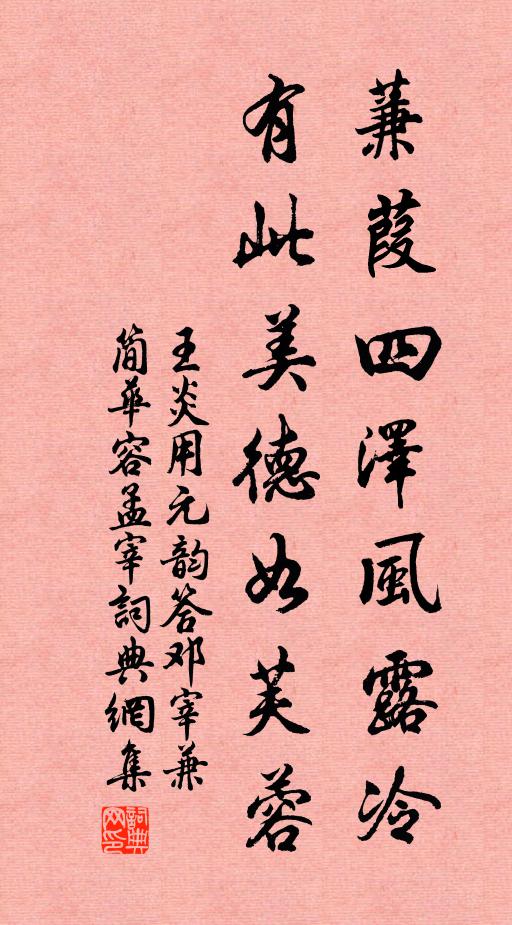 蒹葭四澤風露冷
有此美德如芙蓉
王炎用元韵答邓宰兼
简華容孟宰詞典網集
詞典网印